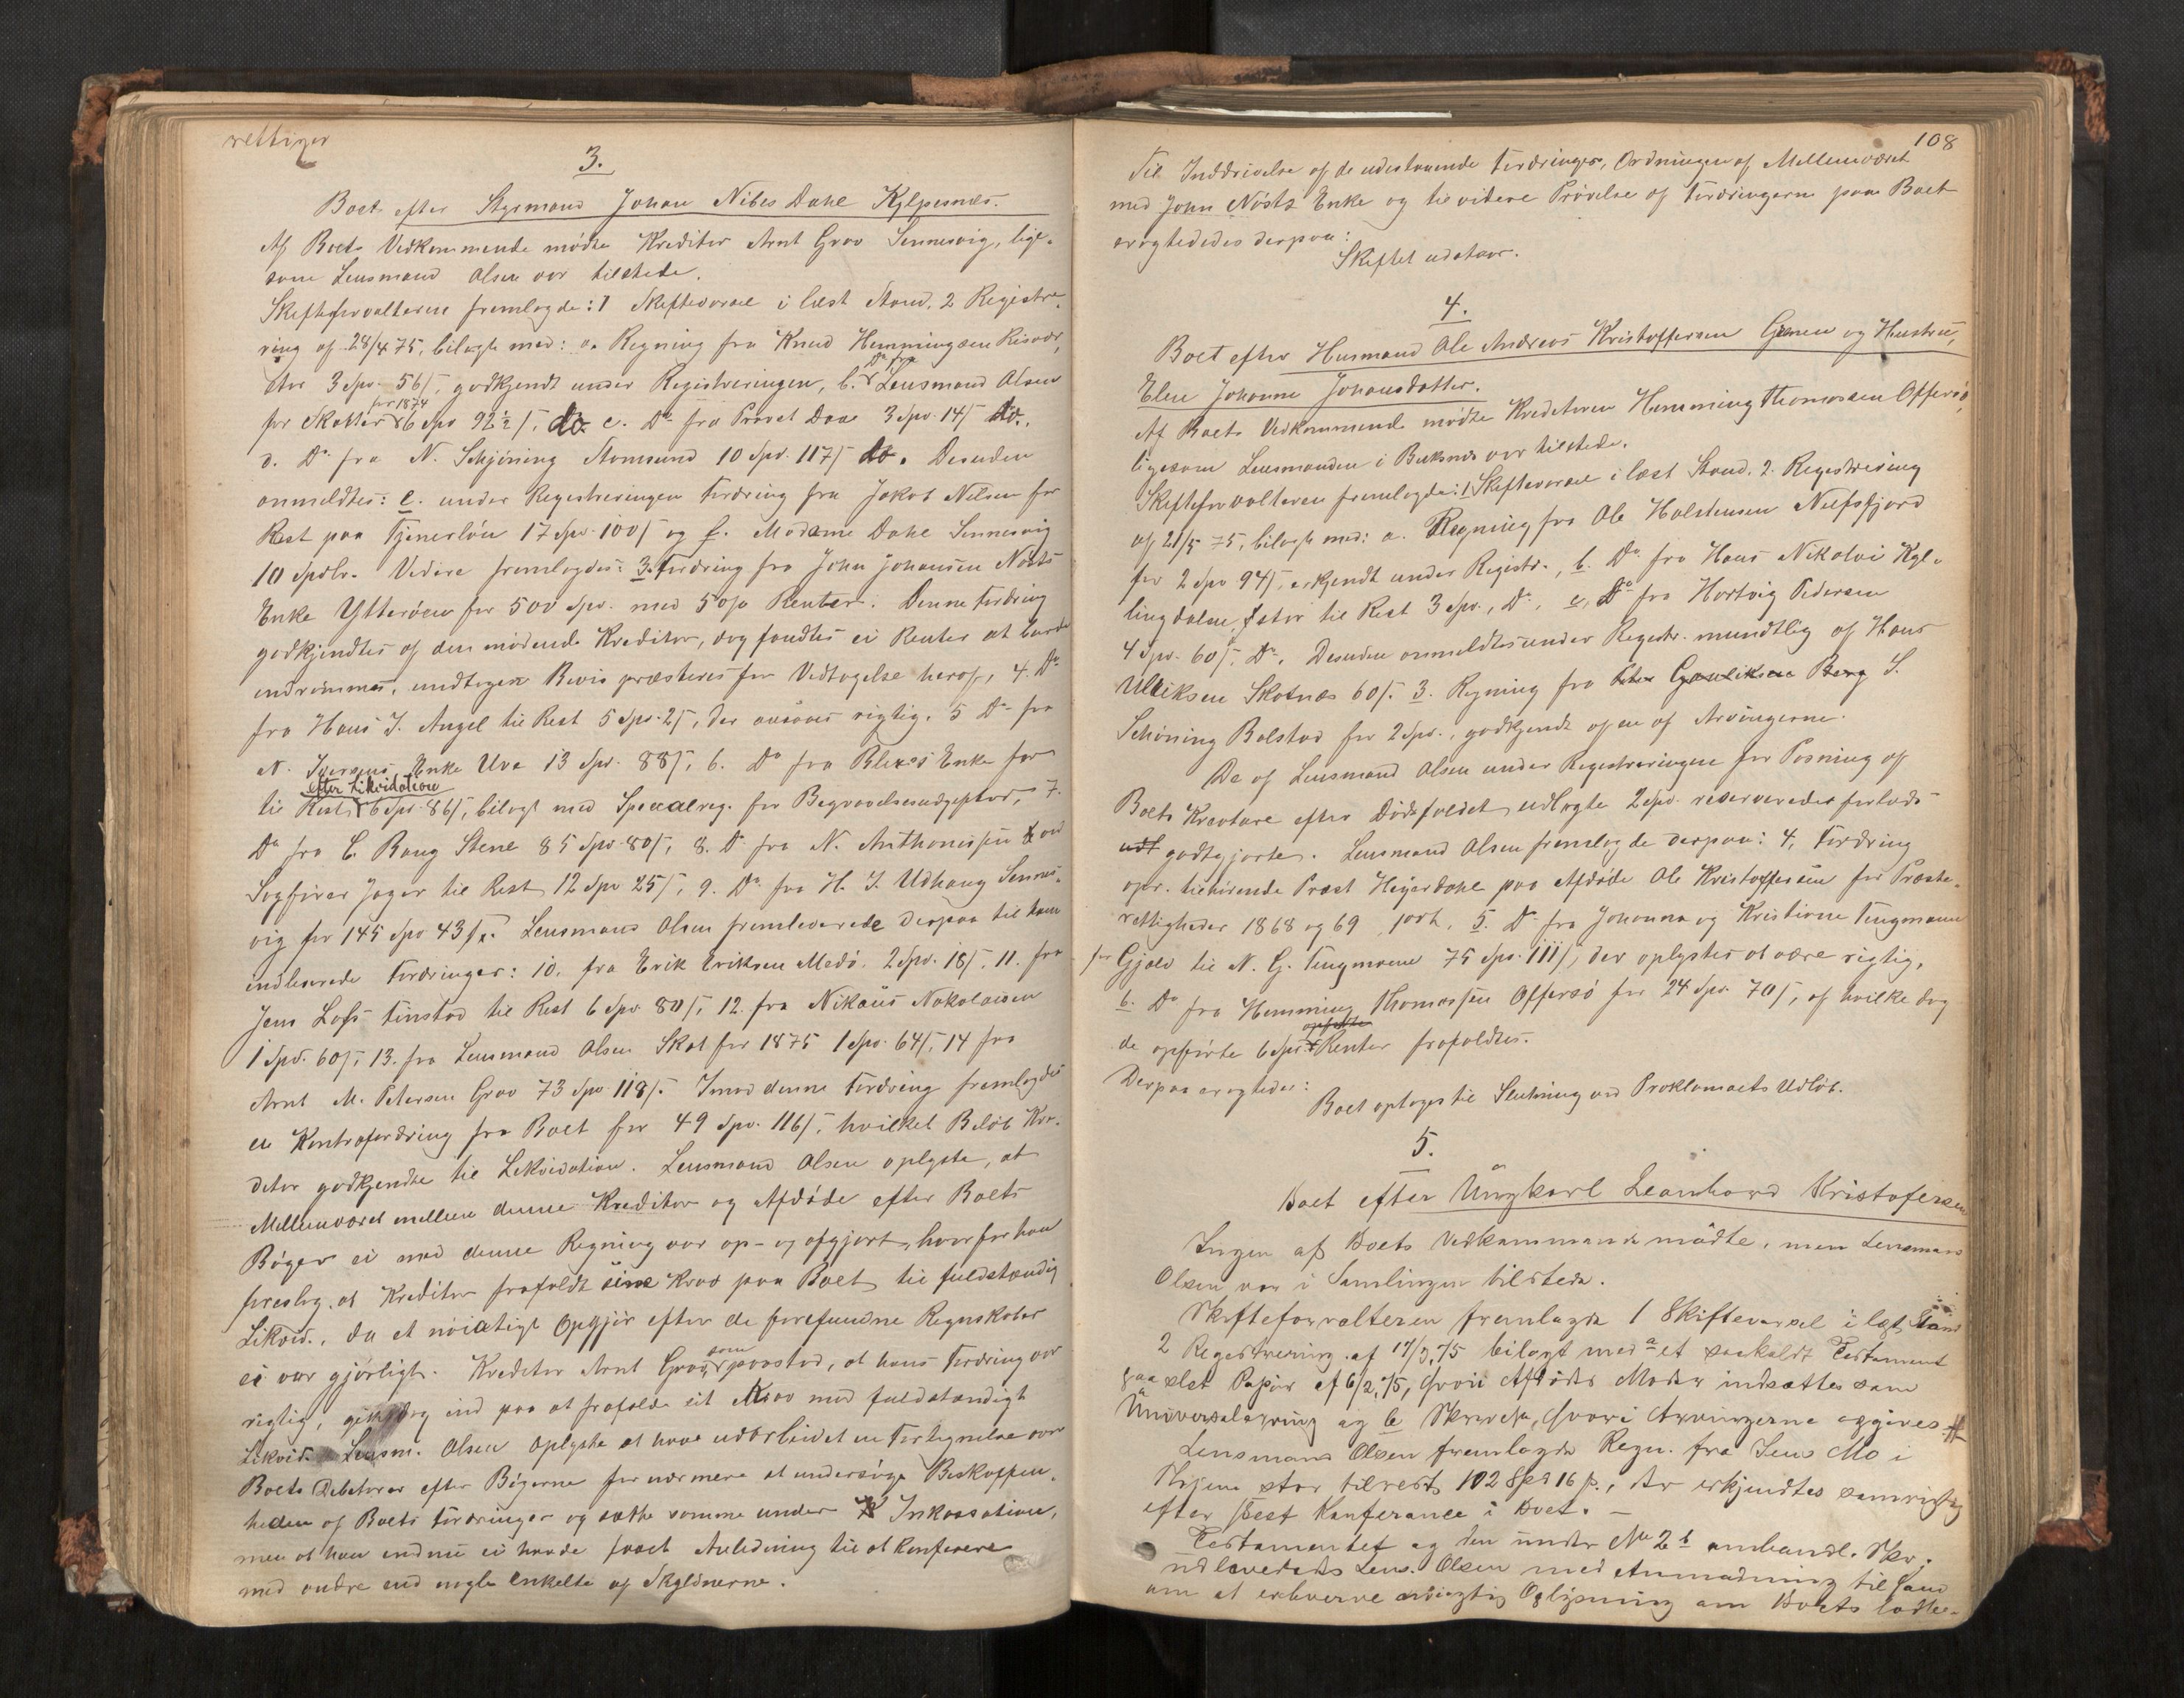 rettiger
3.
Boet efter Styrmand Johan Nibes Dahl Kylpesnes.
Af Boets Vedkommende mødte Kreditor Arnt Grav Sennesvig, lige-
som Lensmand Olsen var tilstede.
Skifteforvalteren fremlagde: 1 Skiftevarsel i læst Stand. 2 Registre-
ring af 28/4 75, bilagt med: a. Regning fra Knud Hemmingsen Risvær,
stor 3 Spd. 56 ß, godkjendt under Registreringen, b. Do fra Lensmand Olsen
for Skatter for 1874 6 Spd 92½ ß, do. c. Do fra Provst Daae 3 Spd. 14 ß do.,
d. Do fra N. Schjöning Stamsund 10 Spd. 117 ß do. Desuden
anmeldtes: e. under Registreringen Fordring fra Jakob Nilsen for
Rest paa Tjenerløn 17 Spd. 100 ß og f. Madame Dahl Sennesvig
10 Spdlr. Videre fremlagdes: 3. Fordring fra John Johansen Nøsts
Enke Ytterøen for 500 Spd. med 5 o/o Renter. Denne Fordring
godkjendtes af den mødende Kreditor, dog fandtes ei Renter at burde
indrømmes, undtagen Bevis præsteres for Vedtagelse heraf, 4. Do
fra Hans J. Angel til Rest 5 Spd. 2 ß, der ansaaes rigtig. 5 Do fra
N. Iversens Enke Uva 13 Spd. 88 ß, 6. Do fra Enke for
til Rest efter Likvidation 6 Spd. 86 ß, bilagt med Specialreg. for Begravelsesudgifter, 7.
Do fra C. Bang Stene 85 Spd. 80 ß, 8. Do fra N. Anthonissen ved
Sagfører Jager til Rest 12 Spd 25 ß, 9. Do fra H. J. Udhaug Sennes-
vig for 145 Spd 43 ß. Lensmand Olsen fremleverede derpaa til ham
indleverede Fordringer: 10. fra Erik Eriksen Medø. 2 Spd. 18 ß, 11. fra
Jens Lofs Finstad til Rest 6 Spd 80 ß, 12. fra Nikolaisen
1 Spd. 60 ß, 13. fra Lensmand Olsen Skat for 1875 1 Spd. 64 ß, 14 fra
Arnt M. Petersen Grav 73 Spd 118 ß. Imod denne Fordring fremlagdes
en Kontrafordring fra Boet for 49 Spd. 116 ß, hvilket Beløb Kre-
ditor godkjendte til Likvidation. Lensmand Olsen oplyste, at
Mellemværet mellem denne Kreditor og Afdøde efter Boets
Bøger ei med denne Regning var op- og afgjort, hvorfor han
foreslog, at Kreditor frafaldt sine Krav paa Boet til fuldstændig
Likvid., da et nøiagtigt Opgjør efter de forefundne Regnskaber
ei var gjørligt. Kreditor Arnt Grav, som paastod, at hans Fordring var
rigtig, gik dog ind paa at frafalde sit Krav mod fuldstændigt
Likvid. Lensm. Olsen oplyste at have udarbeidet en Fortegnelse over
Boets Debitorer efter Bøgerne for nærmere at undersøge Beskaffen-
heden af Boets Fordringer og sætte samme under Inkassation,
men at han endnu ei havde faaet Anledning til at konferere
med andre end nogle enkelte af Skyldnerne.
108
Til Inddrivelse af de udestaaende Fordringer, Ordningen af Mellemværet
med John Nøsts Enke og til videre Prøvelse af Fordringerne paa Boet
eragtededes derpaa:
Skiftet udstaar.
4.
Boet efter Husmand Ole Andreas Kristoffersen Gjeneu og Hustru,
Elen Johanne Johansdatter.
Af Boets Vedkommende mødte Kreditoren Hemming Thomassen Offersø,
ligesom Lensmanden i Buksnes var tilstede.
Skifteforvalteren fremlagde: 1 Skiftevarsel i læst Stand. 2. Registrering
af 21/5 75, bilagt med: a. Regning fra Ole Halstensen Nufsfjord
for 2 Spd 94 ß, erkjendt under Registr., b. Do fra Hans Nikolai Kyl-
lingdalen, stor til Rest 3 Spd., Do, c, Do fra Hartvig Pedersen
4 Spd. 60 ß, Do. Desuden anmeldtes under Registr. mundtlig af Hans
Ulriksen Skotnes 60 ß. 3. Regning fra Berg S.
Schöning Bolstad for 2 Spd., godkjendt af en af Arvingerne.
Da af Lensmand Olsen under Registreringen for Pasning af
Boets Kreature efter Dødsfaldet udlagte 2 Spd. reserveredes forlods
udt godtgjorte. Lensmand Olsen fremlagde derpaa: 4, Fordring
opr. tilhørende Præst Heyerdahl paa Afdøde Ole Kristoffersen for Præste-
rettigheder 1868 og 69 . 5. Do fra Johanna og Kristiane Tengmann
for Gjæld til N. G. Tengmann 75 Spd. 111 ß, der oplystes at være rigtig,
6. Do fra Hemming Thomassen Offersø for 24 Spd. 70 ß, af hvilke dog
de opførte 6 Spd. Renter frafaldtes.
Derpaa eragtedes:
Boet optages til Slutning ved Proklamaets Udløb.
5.
Boet efter Ungkarl Leonhard Kristofersen
Ingen af Boets Vedkommende mødte, men Lensmand
Olsen var i Samlingen tilstede.
Skifteforvalteren fremlagde 1 Skiftevarsel i læst Stand
2 Registrering af 17/3 75 bilagt med a et saakaldt Testament
paa slet Papir af 6/2 75, hvori Afdødes Moder indsættes som
Universalarving og b Skrivelse, hvori Arvingerne opgives
Lensmand Olsen fremlagde Regn. fra Jens Mo i
stor tilrest 102 Spd 16 ß., der erkjendtes som rigtig
efter Konferance i Boet. –
Testamentet og den under No 2 b omhandl. Skr.
udleveredes Lens. Olsen med Anmodning til ham
om at erhverve nøiagtig Oplysning om Boets